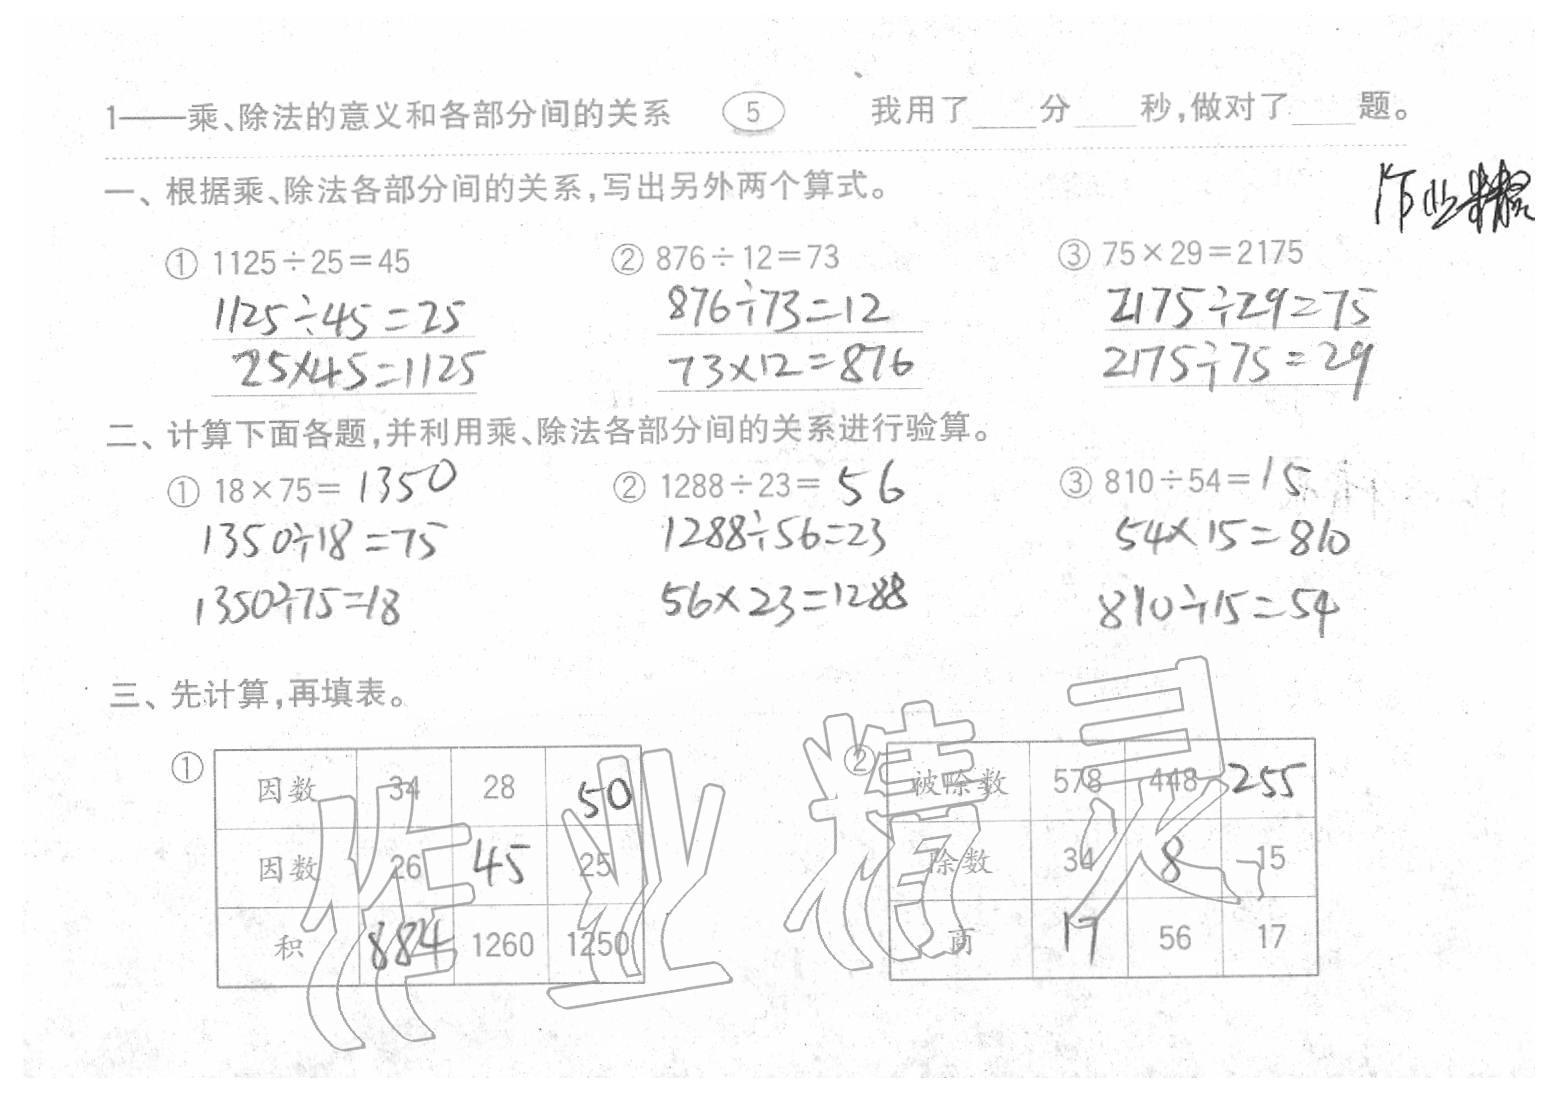 1——乘、除法的意义和各部分间的关系 5 我用了____分____秒,做对了____题。
一、根据乘、除法各部分间的关系,写出另外两个算式。
作业精灵
① 1125÷25=45 ② 876÷12=73 ③ 75×29=2175
1125÷45=25 876÷73=12 2175÷29=75
25×45=1125 73×12=876 2175÷75=29
二、计算下面各题,并利用乘、除法各部分间的关系进行验算。
① 18×75=1350 ② 1288÷23=56 ③ 810÷54=15
1350÷18=75 1288÷56=23 54×15=810
1350÷75=18 56×23=1288 810÷15=54
三、先计算,再填表。
① 因数 34 28 50
因数 26 45 25
积 884 1260 1250
② 被除数 578 448 255
除数 34 8 15
商 17 56 17
作业精灵